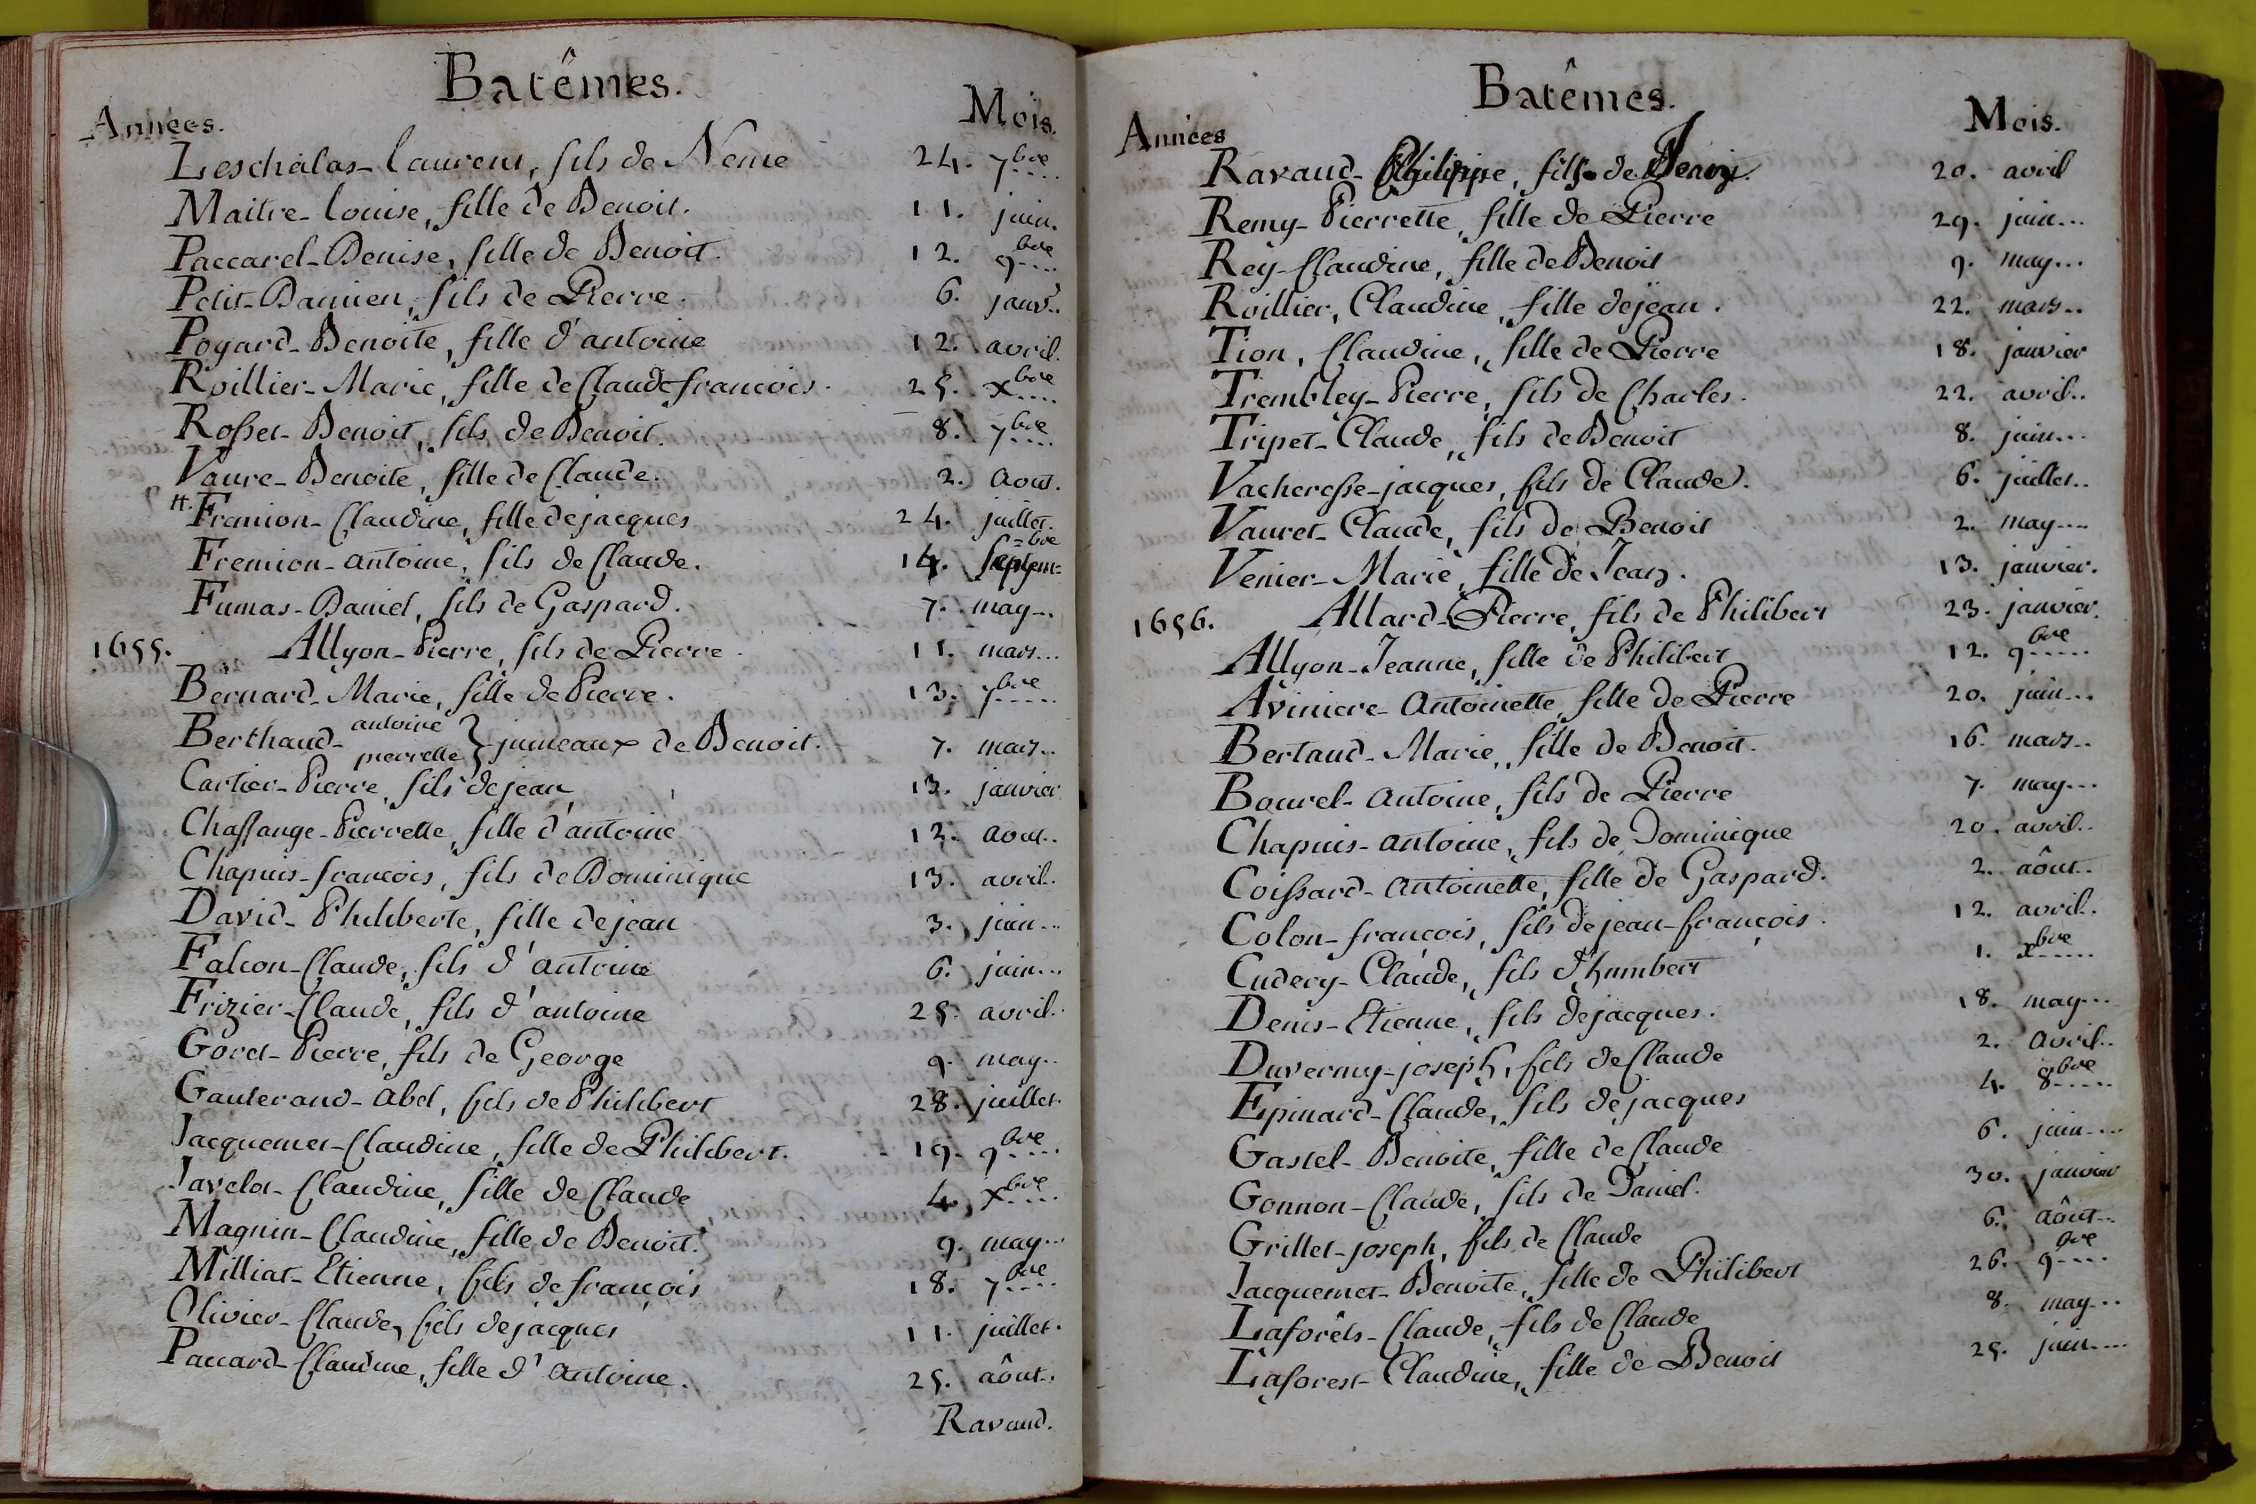 Batêmes.
Années. Mois.
Leschalas-Laurent, fils de Neme 24. 7bre
Maitre-Louise, fille de Benoit. 11. juin.
Paccarel-Denise, fille de Benoit. 12. 9bre
Petit-Damien, fils de Pierre. 6. janvr..
Pogard-Benoite, fille d'antoine 12. avril.
Roillier-Marie, fille de Claude francois. 25. xbre
Rosset-Benoit, fils de Benoit. 8. 7bre
Vaure-Benoite, fille de Claude. 2. Aout.
Fremion-Claudine, fille de jacques 24. juillet.
Fremion-antoine, fils de Claude. 14. 7bre
Fumas-Daniel, fils de Gaspard. 7. may...
1655. Allyon-Pierre, fils de Pierre. 11. mars...
Bernard-Marie, fille de Pierre. 13. 7bre
Berthaud- antoine pierrette } jumeaux de Benoit. 7. mars..
Cartier-Pierre, fils de jean 13. janvier
Chassange-Pierrette, fille d'antoine 12. aout..
Chapuis-francois, fils de Dominique 13. avril..
David-Philiberte, fille de jean 3. juin...
Falcon-Claude, fils d'antoine 6. juin...
Frizier-Claude, fils d'antoine 25. avril..
Goret-Pierre, fils de George 9. may..
Gauterand-Abel, fils de Philibert 28. juillet.
Jacquemet-Claudine, fille de Philibert. 19. 9bre
Javelot-Claudine, fille de Claude 4. xbre
Magnin-Claudine, fille de Benoit. 9. may...
Milliat-Etienne, fils de françois 18. 7bre
Olivier-Claude, fils de jacques 11. juillet.
Paccard-Claudine, fille d'Antoine. 25. aôut..
Ravaud.
Batêmes.
Années Mois.
Ravaud-Philippe, fils de Jean. 20. avril
Remy-Pierrette, fille de Pierre 29. juin...
Rey-Claudine, fille de Benoit 9. may...
Roillier, Claudine, fille de jean. 22. mars..
Tion, Claudine, fille de Pierre 18. janvier
Trembley-Pierre, fils de Charles. 22. avril..
Tripet-Claude, fils de Benoit 8. juin...
Vacheresse-jacques, fils de Claude. 6. juillet..
Vauret-Claude, fils de Benoit 2. may....
Venier-Marie, fille de Jean. 13. janvier.
1656. Allard-Pierre, fils de Philibert 23. janvier.
Allyon-Jeanne, fille de Philibert 12. 9bre
Aviniere-Antoinette, fille de Pierre 20. juin...
Bertaud-Marie, fille de Benoit. 16. mars..
Bourel-Antoine, fils de Pierre 7. may...
Chapuis-antoine, fils de Dominique 20. avril..
Coissard-Antoinette, fille de Gaspard. 2. aôut..
Colon-françois, fils de jean-françois. 12. avril..
Cudery-Claude, fils d'humbert 1. xbre
Denis-Etienne, fils de jacques. 18. may...
Duvernay-joseph, fils de Claude 2. avril..
Epinard-Claude, fils de jacques 4. 8bre
Gastel-Benoite, fille de Claude 6. juin....
Gonnon-Claude, fils de Daniel. 30. janvier
Grillet-joseph, fils de Claude 6. aôut...
Jacquemet-Benoite, fille de Philibert 26. 9bre
Laforêts-Claude, fils de Claude 8. may...
Laforest-Claudine, fille de Benoit 25. juin....